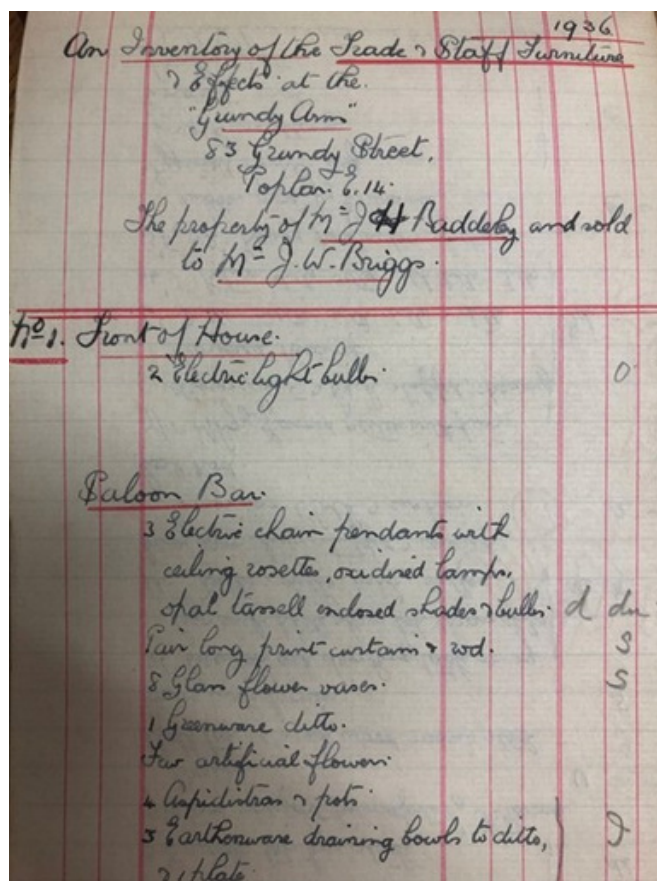 1936
An Inventory of the Trade & Staff Furniture
& Effects at the
"Grundy Arms"
83 Grundy Street,
Poplar. E.14.
The property of Mr J H Baddeley and sold
to Mr J. W. Briggs.
No 1. Front of House.
2 Electric light bulbs. O
Saloon Bar.
3 Electric chain pendants with
ceiling rosettes, oxidised lamps,
opal tassell enclosed shades & bulbs. d
Pair long print curtains & rod. S
8 Glass flower vases. S
1 Greenware ditto.
Few artificial flowers.
4 Aspidistras & pots
3 Earthenware draining bowls to ditto,
& plate.